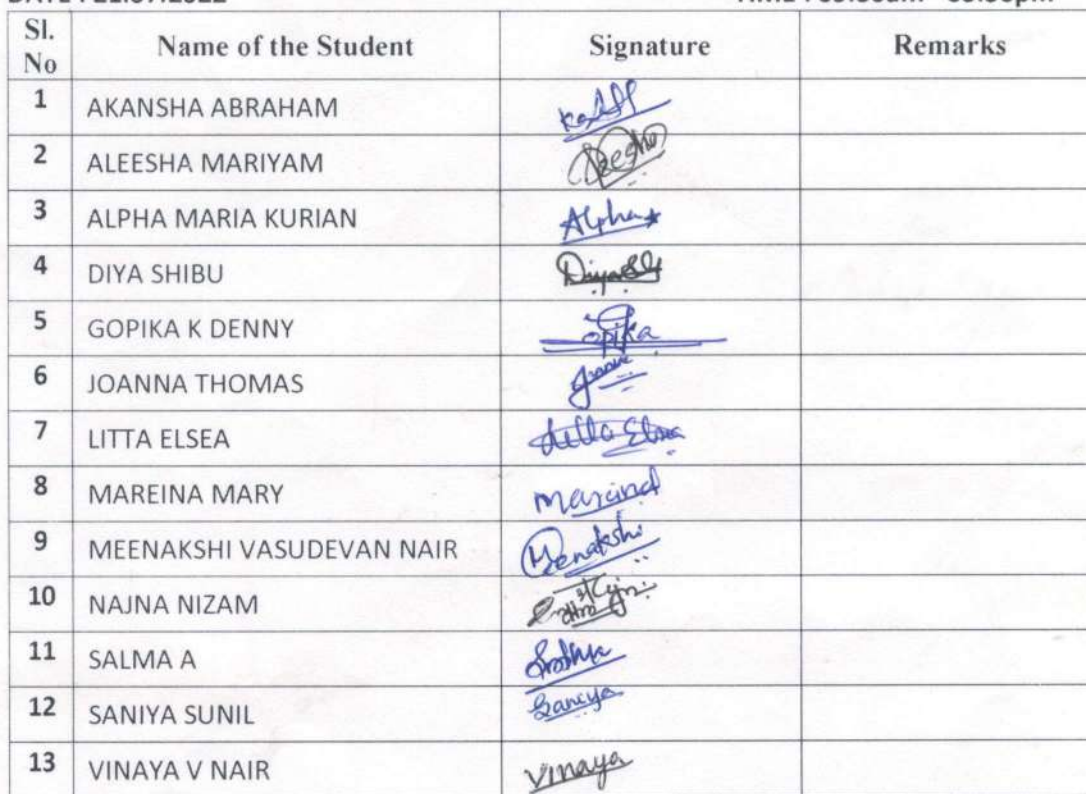 Sl. No Name of the Student Signature Remarks
1 AKANSHA ABRAHAM
2 ALEESHA MARIYAM Aleesha
3 ALPHA MARIA KURIAN Alpha
4 DIYA SHIBU Diya
5 GOPIKA K DENNY Gopika
6 JOANNA THOMAS
7 LITTA ELSEA Litta Elsea
8 MAREINA MARY Mareina
9 MEENAKSHI VASUDEVAN NAIR Meenakshi
10 NAJNA NIZAM
11 SALMA A
12 SANIYA SUNIL Saniya
13 VINAYA V NAIR Vinaya